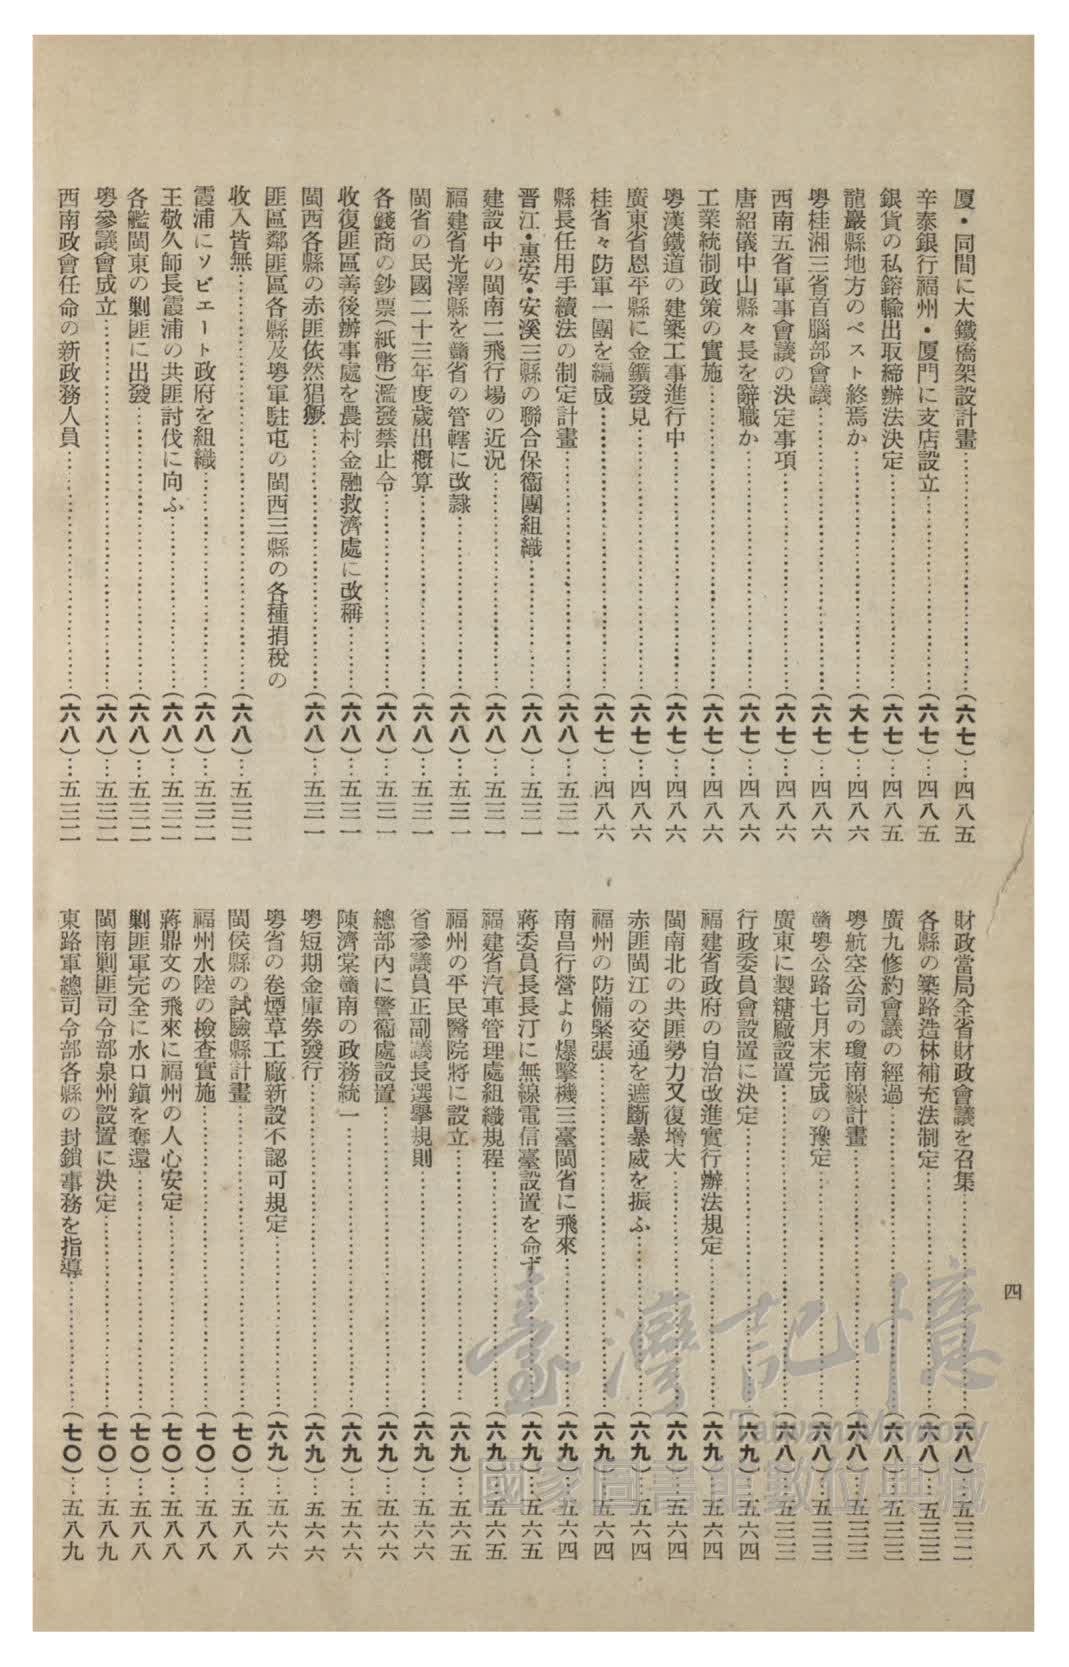 厦・同間に大鐵橋架設計畫……(六七)…四八五
辛泰銀行福州・厦門に支店設立……(六七)…四八五
銀貨の私鎔輸出取締辦法決定……(六七)…四八五
龍巖縣地方のペスト終焉か……(六七)…四八六
粤桂湘三省首腦部會議……(六七)…四八六
西南五省軍事會議の決定事項……(六七)…四八六
唐紹儀中山縣々長を辭職か……(六七)…四八六
工業統制政策の實施……(六七)…四八六
粤漢鐵道の建築工事進行中……(六七)…四八六
廣東省恩平縣に金鑛發見……(六七)…四八六
桂省々防軍一團を編成……(六七)…四八六
縣長任用手續法の制定計畫……(六八)…五三一
晋江・惠安・安溪三縣の聯合保衞團組織……(六八)…五三一
建設中の閩南二飛行場の近況……(六八)…五三一
福建省光澤縣を贛省の管轄に改隷……(六八)…五三一
閩省の民國二十三年度歲出概算……(六八)…五三一
各錢商の鈔票(紙幣)濫發禁止令……(六八)…五三一
收復匪區善後辦事處を農村金融救濟處に改稱……(六八)…五三一
閩西各縣の赤匪依然猖獗……(六八)…五三一
匪區鄰匪區各縣及粤軍駐屯の閩西三縣の各種捐稅の
收入皆無……(六八)…五三二
霞浦にソビエート政府を組織……(六八)…五三二
王敬久師長霞浦の共匪討伐に向ふ……(六八)…五三二
各艦閩東の剿匪に出發……(六八)…五三二
粤參議會成立……(六八)…五三二
西南政會任命の新政務人員……(六八)…五三二
財政當局全省財政會議を召集……(六八)…五三二
各縣の築路造林補充法制定……(六八)…五三三
廣九修約會議の經過……(六八)…五三三
粤航空公司の瓊南線計畫……(六八)…五三三
贛粤公路七月末完成の豫定……(六八)…五三三
廣東に製糖廠設置……(六八)…五三三
行政委員會設置に決定……(六九)…五六四
福建省政府の自治改進實行辦法規定……(六九)…五六四
閩南北の共匪勢力又復增大……(六九)…五六四
赤匪閩江の交通を遮斷暴威を振ふ……(六九)…五六四
福州の防備緊張……(六九)…五六四
南昌行營より爆擊機三臺閩省に飛來……(六九)…五六四
蔣委員長長汀に無線電信臺設置を命ず……(六九)…五六五
福建省汽車管理處組織規程……(六九)…五六五
福州の平民醫院將に設立……(六九)…五六五
省參議員正副議長選擧規則……(六九)…五六六
總部內に警衞處設置……(六九)…五六六
陳濟棠贛南の政務統一……(六九)…五六六
粤短期金庫券發行……(六九)…五六六
粤省の卷煙草工廠新設不認可規定……(六九)…五六六
閩侯縣の試驗縣計畫……(七〇)…五八八
福州水陸の檢查實施……(七〇)…五八八
蔣鼎文の飛來に福州の人心安定……(七〇)…五八八
剿匪軍完全に水口鎭を奪還……(七〇)…五八八
閩南剿匪司令部泉州設置に決定……(七〇)…五八九
東路軍總司令部各縣の封鎖事務を指導……(七〇)…五八九
四
臺灣記憶
Taiwan Memory
國家圖書館數位典藏